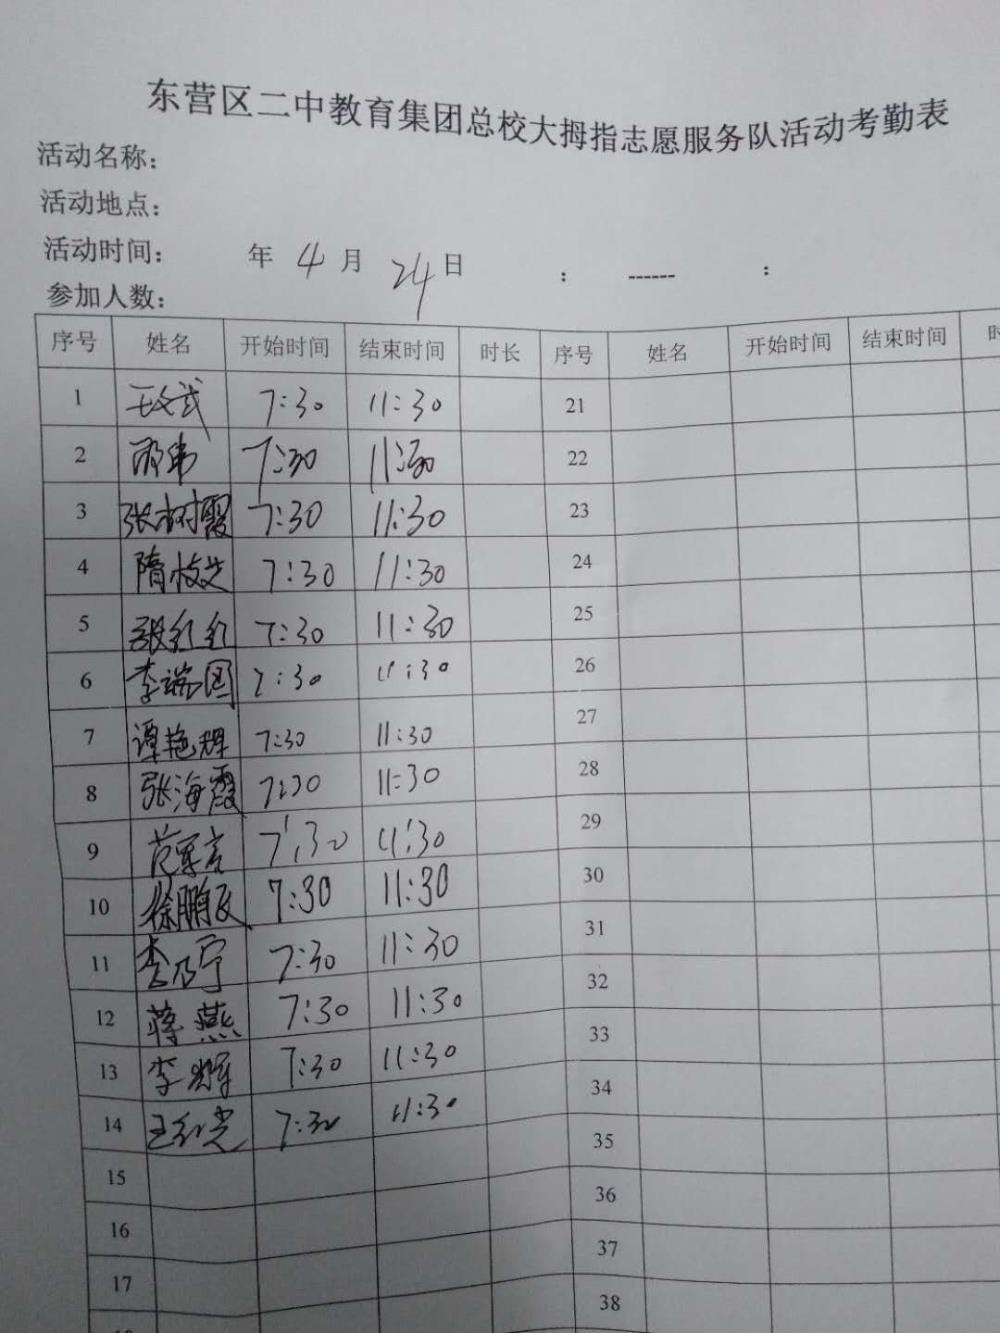 东营区二中教育集团总校大拇指志愿服务队活动考勤表
活动名称：
活动地点：
活动时间： 年 4 月 24 日 : ------ :
参加人数：
序号 姓名 开始时间 结束时间 时长 序号 姓名 开始时间 结束时间
1 7:30 11:30 21
2 7:30 11:30 22
3 张树霞 7:30 11:30 23
4 隋 7:30 11:30 24
5 张红红 7:30 11:30 25
6 李瑞国 7:30 11:30 26
7 谭艳辉 7:30 11:30 27
8 张海霞 7:30 11:30 28
9 范 7:30 11:30 29
10 徐鹏飞 7:30 11:30 30
11 李乃宁 7:30 11:30 31
12 蒋燕 7:30 11:30 32
13 李辉 7:30 11:30 33
14 王 7:30 11:30 34
15 35
16 36
17 37
38